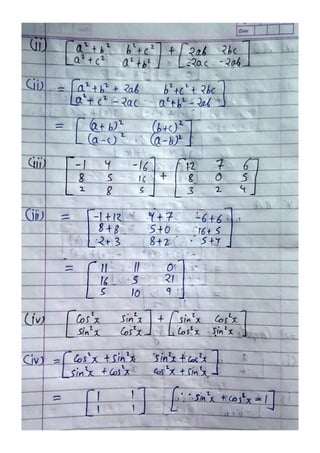 Date
(ii) [ a² + b² b² + c² ] + [ 2ab 2bc ]
[ a² + c² a² + b² ] [ -2ac -2ab ]
(ii) = [ a² + b² + 2ab b² + c² + 2bc ]
[ a² + c² - 2ac a² + b² - 2ab ]
= [ (a+b)² (b+c)² ]
[ (a-c)² (a-b)² ]
(iii) [ -1 4 -16 ] + [ 12 7 6 ]
[ 8 5 16 ] [ 8 0 5 ]
[ 2 8 5 ] [ 3 2 4 ]
(iii) = [ -1+12 4+7 -6+6 ]
[ 8+8 5+0 16+5 ]
[ 2+3 8+2 5+4 ]
= [ 11 11 0 ]
[ 16 5 21 ]
[ 5 10 9 ]
(iv) [ Cos²x Sin²x ] + [ Sin²x Cos²x ]
[ Sin²x Cos²x ] [ Cos²x Sin²x ]
(iv) = [ Cos²x + Sin²x Sin²x + Cos²x ]
[ Sin²x + Cos²x Cos²x + Sin²x ]
= [ 1 1 ] [ ∵ Sin²x + Cos²x = 1 ]
[ 1 1 ]